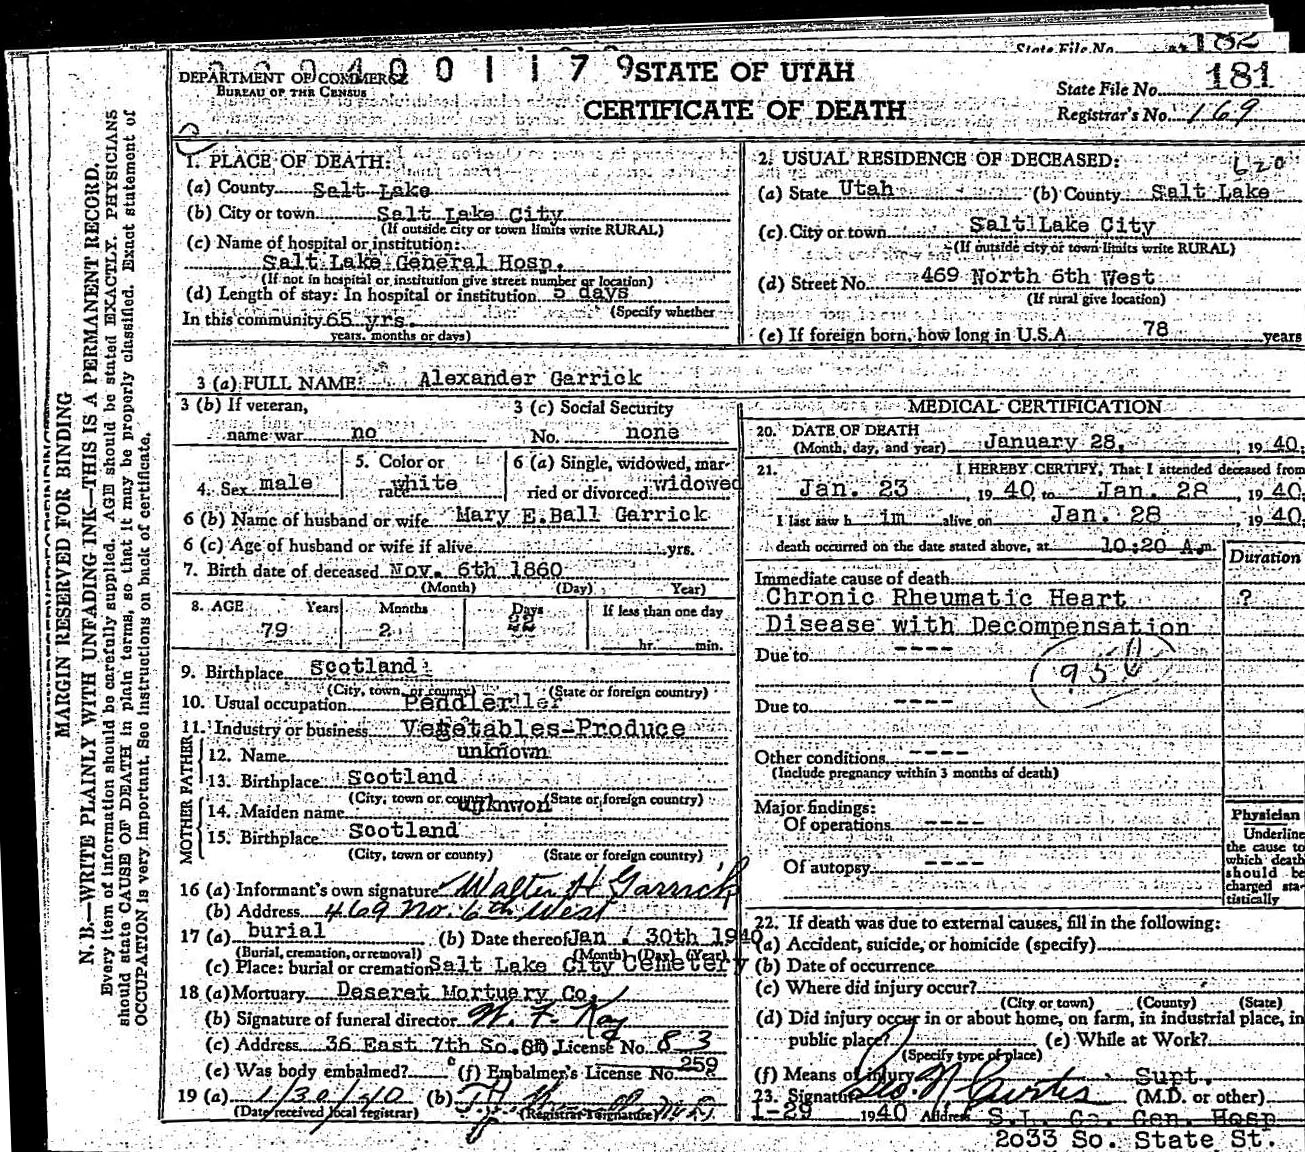 182
State File No.
DEPARTMENT OF COMMERCE
BUREAU OF THE CENSUS
0 0 1 1 7 9
STATE OF UTAH
CERTIFICATE OF DEATH
State File No. 181
Registrar's No. 169
1. PLACE OF DEATH:
(a) County Salt Lake
(b) City or town Salt Lake City
(If outside city or town limits write RURAL)
(c) Name of hospital or institution:
Salt Lake General Hosp.
(If not in hospital or institution give street number or location)
(d) Length of stay: In hospital or institution 5 days
(Specify whether
In this community 65 yrs.
years, months or days)
2. USUAL RESIDENCE OF DECEASED: 620
(a) State Utah (b) County Salt Lake
(c) City or town Salt Lake City
(If outside city or town limits write RURAL)
(d) Street No. 469 North 6th West
(If rural give location)
(e) If foreign born, how long in U.S.A. 78 years
3 (a) FULL NAME: Alexander Garrick
3 (b) If veteran, name war no
3 (c) Social Security No. none
4. Sex male
5. Color or race white
6 (a) Single, widowed, married or divorced widowed
6 (b) Name of husband or wife Mary E.Ball Garrick
6 (c) Age of husband or wife if alive yrs.
7. Birth date of deceased Nov. 6th 1860
(Month) (Day) Year)
8. AGE Years Months Days If less than one day
79 2 22 hr. min.
9. Birthplace Scotland
(City, town, or county) (State or foreign country)
10. Usual occupation Peddler
11. Industry or business Vegetables-Produce
FATHER
12. Name unknown
13. Birthplace Scotland
(City, town or county) (State or foreign country)
MOTHER
14. Maiden name unknwon
15. Birthplace Scotland
(City, town or county) (State or foreign country)
16 (a) Informant's own signature Walter H Garrick
(b) Address 469 No. 6th West
17 (a) burial (b) Date thereof Jan. 30th 1940
(Burial, cremation, or removal) (Month) (Day) (Year)
(c) Place: burial or cremation Salt Lake City Cemetery
18 (a) Mortuary Deseret Mortuary Co.
(b) Signature of funeral director W. F. Kay
(c) Address 36 East 7th So. St. License No. 83
(e) Was body embalmed? (f) Embalmer's License No. 259
19 (a) 1/30/40 (b)
(Date received local registrar) (Registrar's signature)
MEDICAL CERTIFICATION
20. DATE OF DEATH
(Month, day, and year) January 28, 19 40
21. I HEREBY CERTIFY, That I attended deceased from
Jan. 23, 19 40 to Jan. 28, 19 40
I last saw h im alive on Jan. 28, 19 40
death occurred on the date stated above, at 10:20 A.m
Duration
Immediate cause of death
Chronic Rheumatic Heart ?
Disease with Decompensation
Due to ----
Due to ----
Other conditions ----
(Include pregnancy within 3 months of death)
Major findings:
Of operations ----
Of autopsy ----
Physician
Underline
the cause to
which death
should be
charged sta-
tistically
22. If death was due to external causes, fill in the following:
(a) Accident, suicide, or homicide (specify)
(b) Date of occurrence
(c) Where did injury occur?
(City or town) (County) (State)
(d) Did injury occur in or about home, on farm, in industrial place, in
public place? (e) While at Work?
(Specify type of place)
(f) Means of injury Supt.
23. Signature Geo N Curtis (M.D. or other)
1-29 1940 Address S.L. Co. Gen. Hosp
2033 So. State St.
MARGIN RESERVED FOR BINDING
N. B.—WRITE PLAINLY WITH UNFADING INK—THIS IS A PERMANENT RECORD.
Every item of information should be carefully supplied. AGE should be stated EXACTLY. PHYSICIANS
should state CAUSE OF DEATH in plain terms, so that it may be properly classified. Exact statement of
OCCUPATION is very important. See instructions on back of certificate.